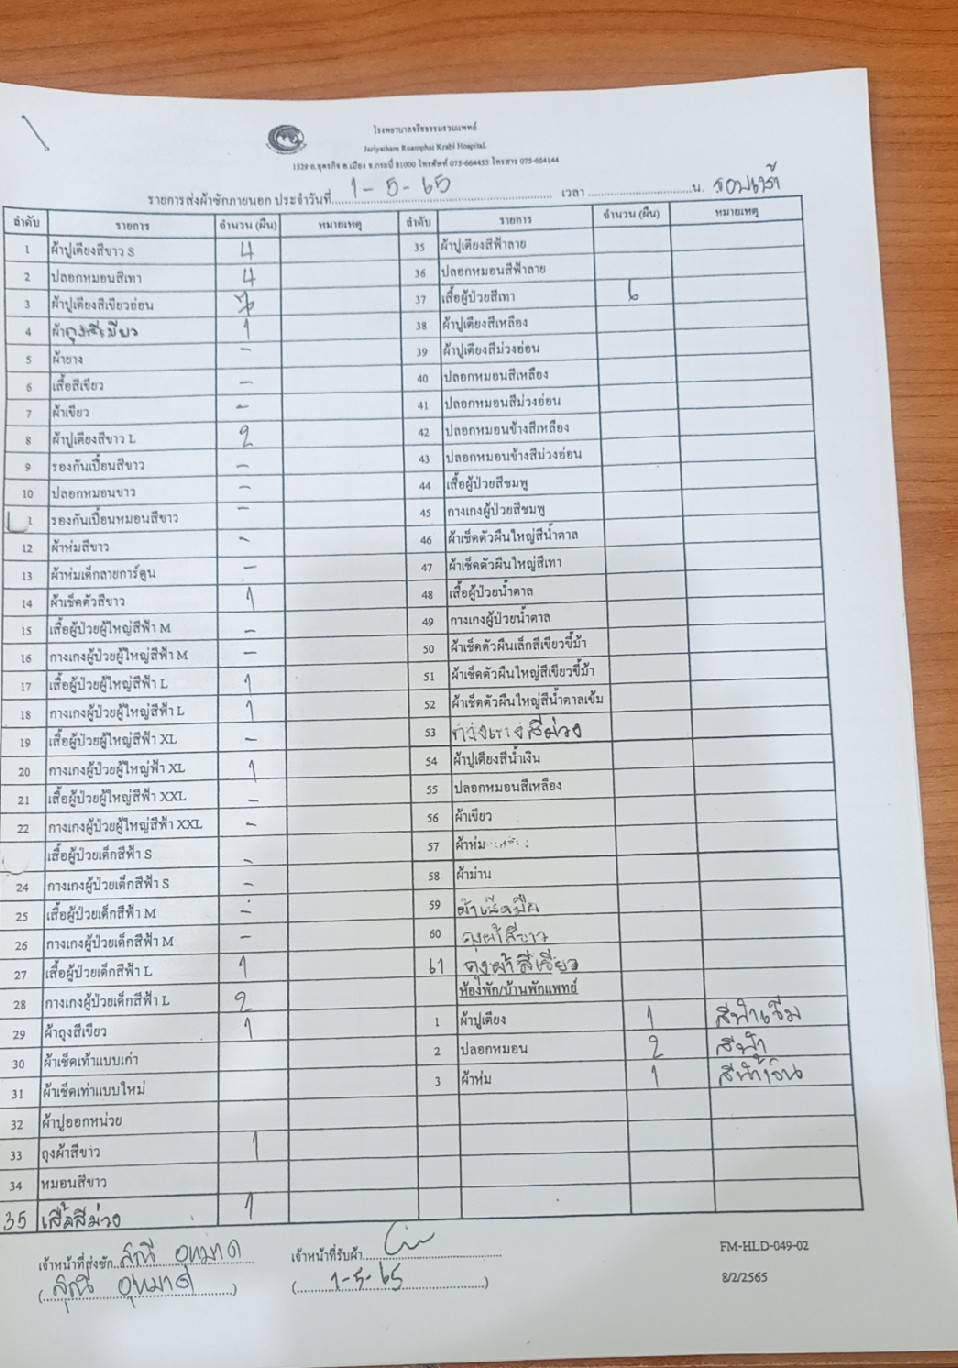 โรงพยาบาลจริยธรรมรวมแพทย์
Jariyatham Ruamphat Krabi Hospital
1329 ถ.อุตรกิจ อ.เมือง จ.กระบี่ 81000 โทรศัพท์ 075-664455 โทรสาร 075-664144
รายการส่งผ้าซักภายนอก ประจำวันที่ 1-5-65 เวลา น. รอบเช้า
ลำดับ รายการ จำนวน (ผืน) หมายเหตุ ลำดับ รายการ จำนวน (ผืน) หมายเหตุ
1 ผ้าปูเตียงสีขาว S 4 35 ผ้าปูเตียงสีฟ้าลาย
2 ปลอกหมอนสีเทา 4 36 ปลอกหมอนสีฟ้าลาย
3 ผ้าปูเตียงสีเขียวอ่อน 37 เสื้อผู้ป่วยสีเทา 6
4 ผ้าถุงสีเขียว 1 38 ผ้าปูเตียงสีเหลือง
5 ผ้ายาง - 39 ผ้าปูเตียงสีม่วงอ่อน
6 เสื้อสีเขียว - 40 ปลอกหมอนสีเหลือง
7 ผ้าเขียว - 41 ปลอกหมอนสีม่วงอ่อน
8 ผ้าปูเตียงสีขาว L 2 42 ปลอกหมอนข้างสีเหลือง
9 รองกันเปื้อนสีขาว - 43 ปลอกหมอนข้างสีม่วงอ่อน
10 ปลอกหมอนขาว - 44 เสื้อผู้ป่วยสีชมพู
1 รองกันเปื้อนหมอนสีขาว - 45 กางเกงผู้ป่วยสีชมพู
12 ผ้าห่มสีขาว - 46 ผ้าเช็ดตัวผืนใหญ่สีน้ำตาล
13 ผ้าห่มเด็กลายการ์ตูน - 47 ผ้าเช็ดตัวผืนใหญ่สีเทา
14 ผ้าเช็ดตัวสีขาว 1 48 เสื้อผู้ป่วยน้ำตาล
15 เสื้อผู้ป่วยผู้ใหญ่สีฟ้า M - 49 กางเกงผู้ป่วยน้ำตาล
16 กางเกงผู้ป่วยผู้ใหญ่สีฟ้า M - 50 ผ้าเช็ดตัวผืนเล็กสีเขียวขี้ม้า
17 เสื้อผู้ป่วยผู้ใหญ่สีฟ้า L 1 51 ผ้าเช็ดตัวผืนใหญ่สีเขียวขี้ม้า
18 กางเกงผู้ป่วยผู้ใหญ่สีฟ้า L 1 52 ผ้าเช็ดตัวผืนใหญ่สีน้ำตาลเข้ม
19 เสื้อผู้ป่วยผู้ใหญ่สีฟ้า XL - 53 กางเกงสีม่วง
20 กางเกงผู้ป่วยผู้ใหญ่ฟ้า XL 1 54 ผ้าปูเตียงสีน้ำเงิน
21 เสื้อผู้ป่วยผู้ใหญ่สีฟ้า XXL - 55 ปลอกหมอนสีเหลือง
22 กางเกงผู้ป่วยผู้ใหญ่สีฟ้า XXL - 56 ผ้าเขียว
เสื้อผู้ป่วยเด็กสีฟ้า S - 57 ผ้าห่ม
24 กางเกงผู้ป่วยเด็กสีฟ้า S - 58 ผ้าม่าน
25 เสื้อผู้ป่วยเด็กสีฟ้า M - 59 ผ้าเช็ดมือ
26 กางเกงผู้ป่วยเด็กสีฟ้า M - 60 ถุงผ้าสีขาว
27 เสื้อผู้ป่วยเด็กสีฟ้า L 1 61 ถุงผ้าสีเขียว
28 กางเกงผู้ป่วยเด็กสีฟ้า L 2 ห้องพัก/บ้านพักแพทย์
29 ผ้าถุงสีเขียว 1 1 ผ้าปูเตียง 1 สีฟ้าเข้ม
30 ผ้าเช็ดเท้าแบบเก่า 2 ปลอกหมอน 2 สีฟ้า
31 ผ้าเช็ดเท่าแบบใหม่ 3 ผ้าห่ม 1 สีน้ำเงิน
32 ผ้าปูออกหน่วย
33 ถุงผ้าสีขาว 1
34 หมอนสีขาว
35 เสื้อสีม่วง 1
เจ้าหน้าที่ส่งซัก เจ้าหน้าที่รับผ้า FM-HLD-049-02
(1-5-65) 8/2/2565